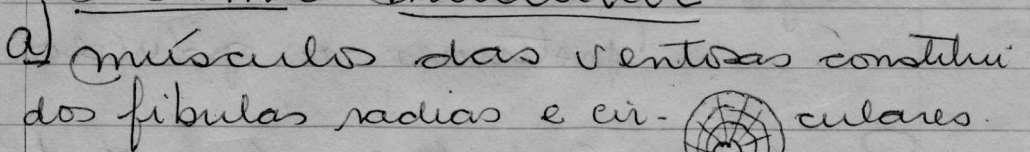 a) músculos das ventosas constitui
dos fibulas radias e cir- culares.